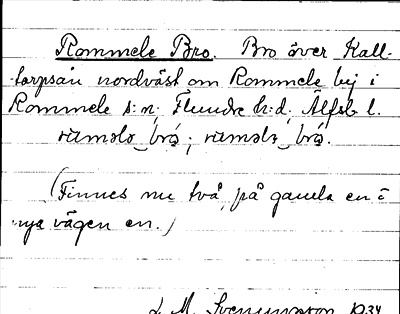 Rommele Bro. Bro över Kall-
torpsån nordväst om Rommele by i
Rommele s:n; Flundre h:d; Älfsb l.
(Finnes nu två, på gamla en å
nya vägen en.)
L M. Svenungsson 1934